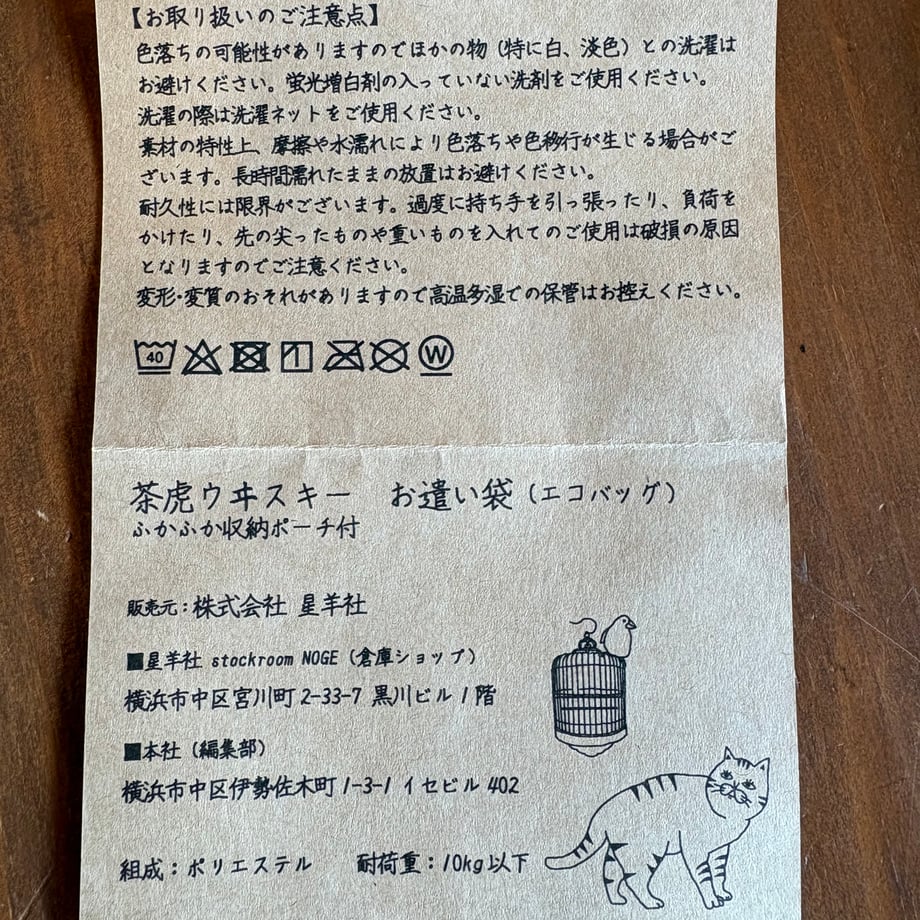 【お取り扱いのご注意点】
色落ちの可能性がありますのでほかの物（特に白、淡色）との洗濯は
お避けください。蛍光増白剤の入っていない洗剤をご使用ください。
洗濯の際は洗濯ネットをご使用ください。
素材の特性上、摩擦や水濡れにより色落ちや色移行が生じる場合がご
ざいます。長時間濡れたままの放置はお避けください。
耐久性には限界がございます。過度に持ち手を引っ張ったり、負荷を
かけたり、先の尖ったものや重いものを入れてのご使用は破損の原因
となりますのでご注意ください。
変形・変質のおそれがありますので高温多湿での保管はお控えください。
40 W
茶虎ウヰスキー　お遣い袋（エコバッグ）
ふかふか収納ポーチ付
販売元：株式会社 星羊社
■星羊社 stockroom NOGE（倉庫ショップ）
横浜市中区宮川町 2-33-7 黒川ビル 1 階
■本社（編集部）
横浜市中区伊勢佐木町 1-3-1 イセビル 402
組成：ポリエステル　耐荷重：10kg 以下